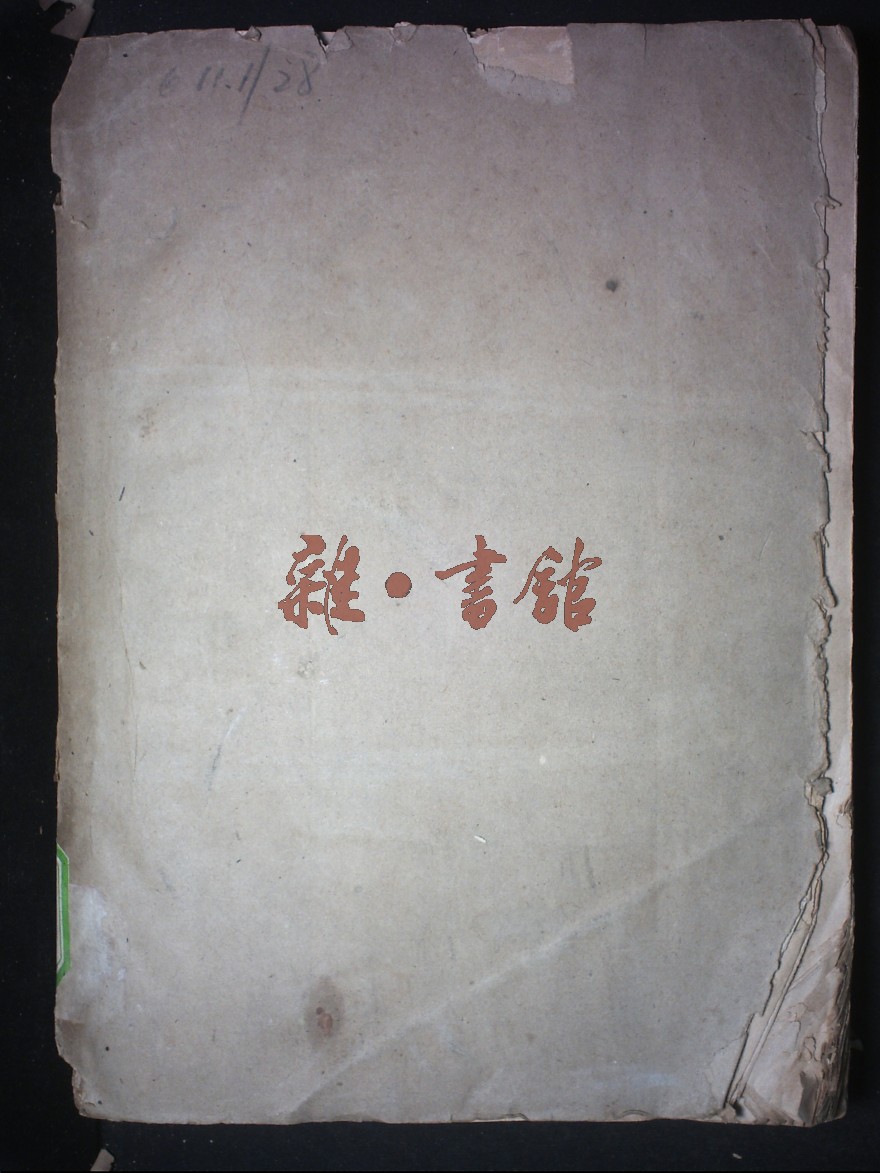 6 11.1/28
雜·書館